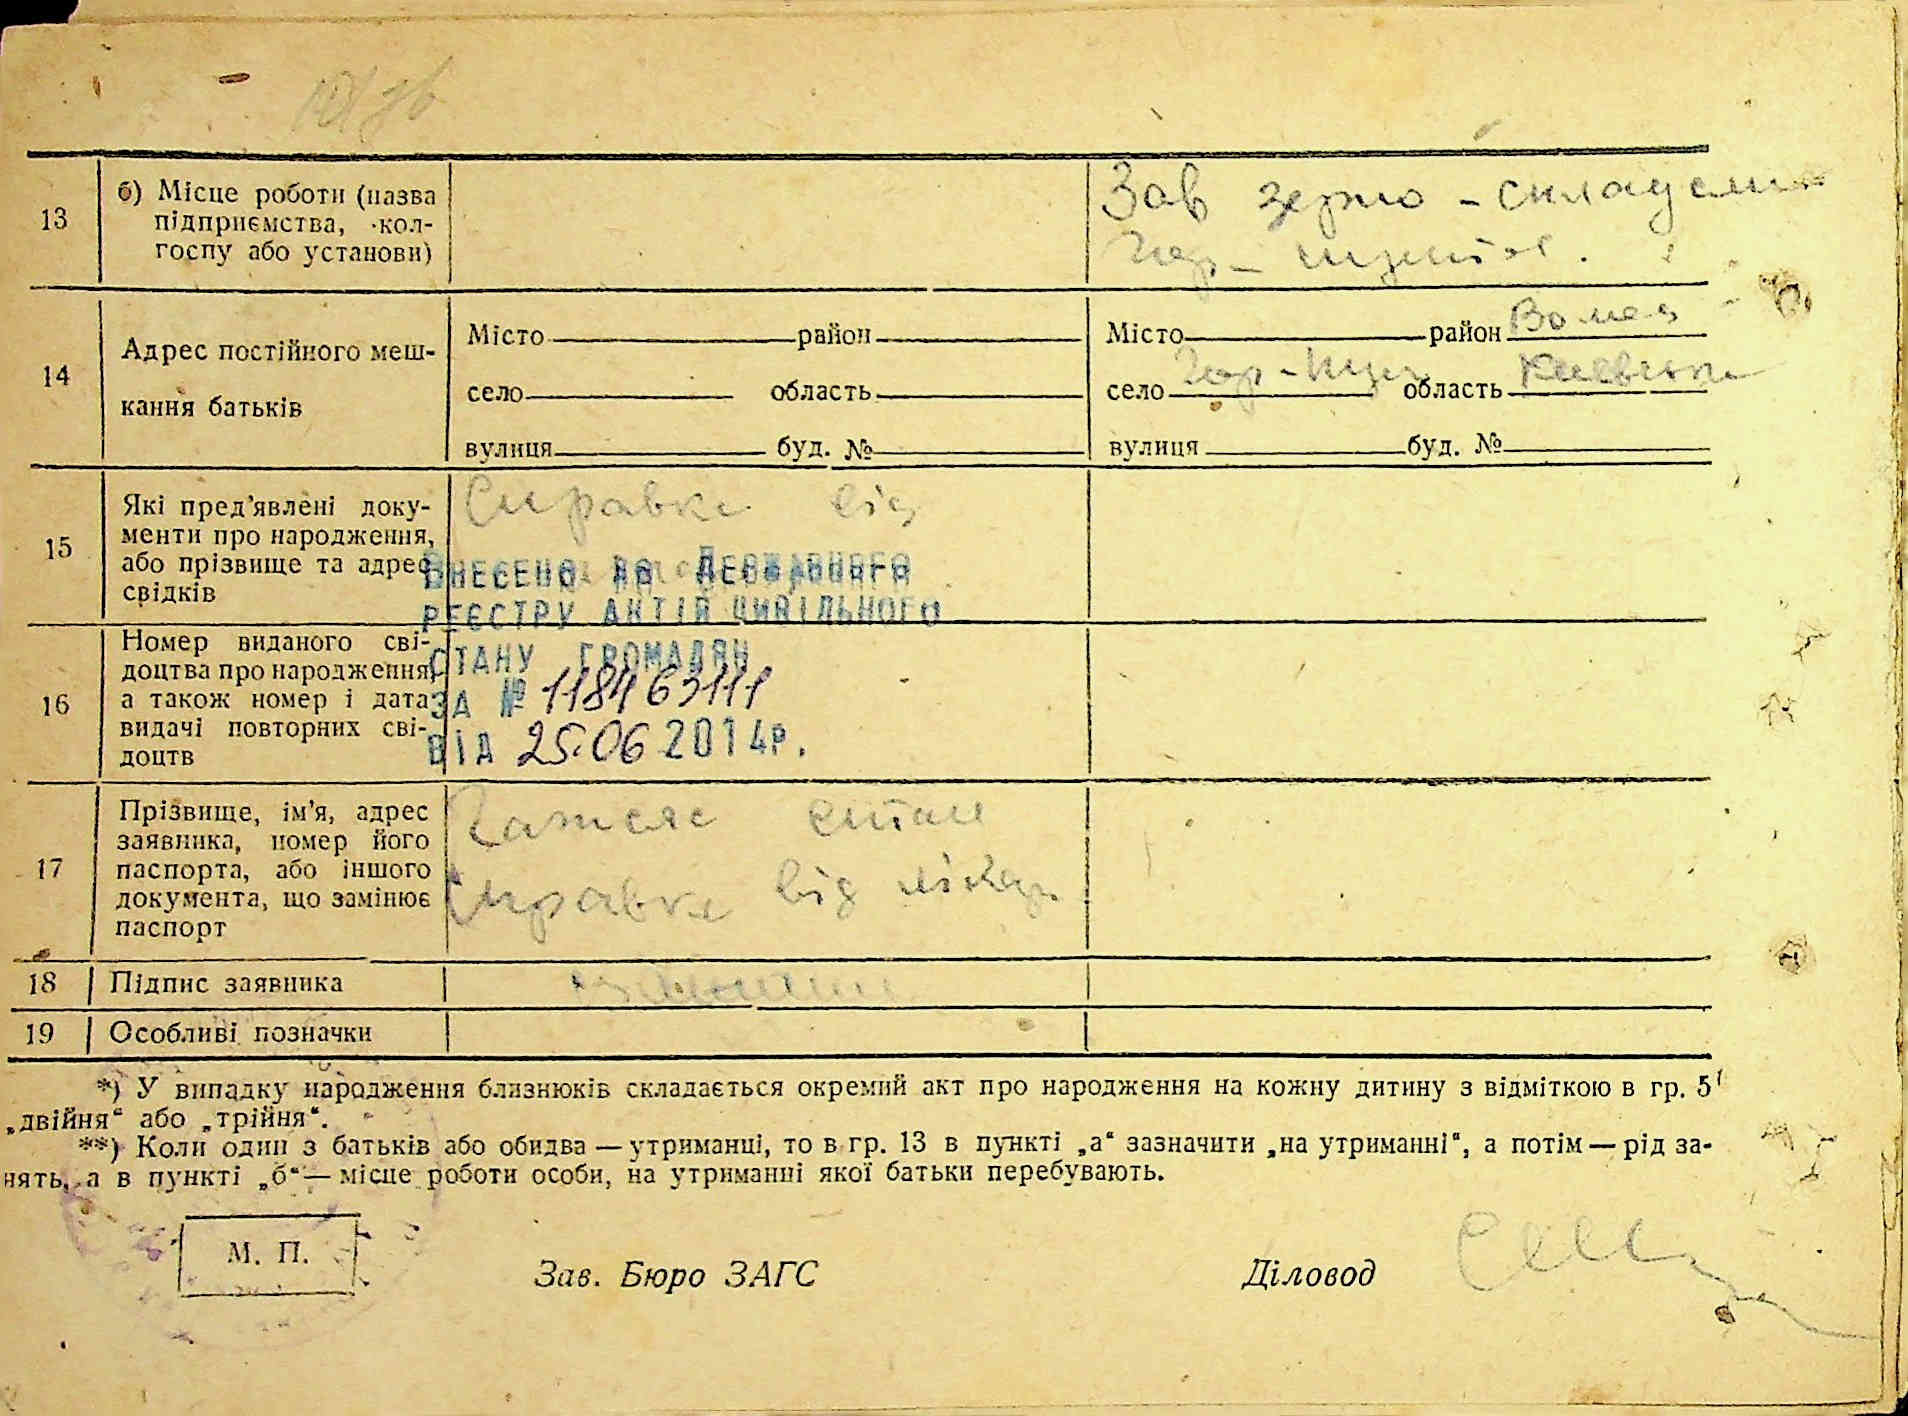 13 б) Місце роботи (назва підприємства, кол-госпу або установи) Зав зерно - складом
14 Адрес постійного меш-
кання батьків
Місто район Місто район
село область село область Київська
вулиця буд. № вулиця буд. №
15 Які пред'явлені доку-
менти про народження,
або прізвище та адрес
свідків
Справка від
ВНЕСЕНО ДО ДЕРЖАВНОГО
РЕЄСТРУ АКТІВ ЦИВІЛЬНОГО
СТАНУ ГРОМАДЯН
ЗА № 118463111
ВІД 25.06 2014р.
16 Номер виданого сві-
доцтва про народження,
а також номер і дата
видачі повторних сві-
доцтв
17 Прізвище, ім'я, адрес
заявника, номер його
паспорта, або іншого
документа, що замінює
паспорт
Справка від
18 Підпис заявника
19 Особливі позначки
*) У випадку народження близнюків складається окремий акт про народження на кожну дитину з відміткою в гр. 5
„двійня“ або „трійня“.
**) Коли один з батьків або обидва — утриманці, то в гр. 13 в пункті „а“ зазначити „на утриманні“, а потім — рід за-
нять, а в пункті „б“ — місце роботи особи, на утриманні якої батьки перебувають.
М. П.
Зав. Бюро ЗАГС Діловод